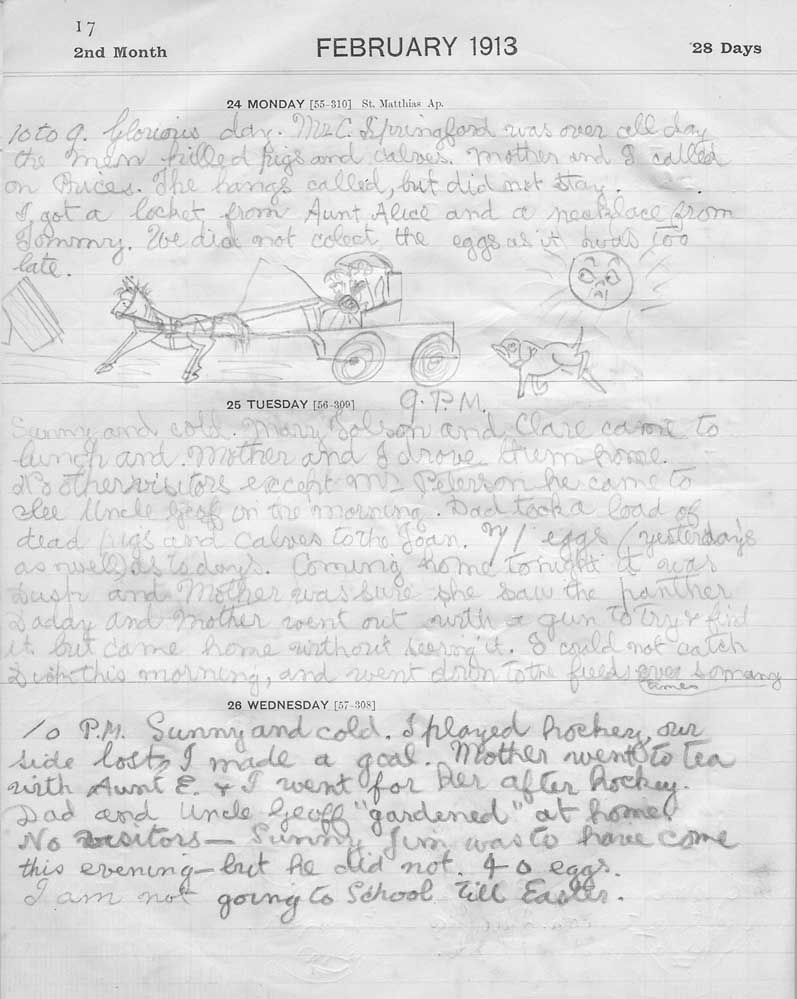 17
2nd Month
FEBRUARY 1913
28 Days
24 MONDAY [55-310] St. Matthias Ap.
10 to 9. Glorious day. Mr C. Springford was over all day
the men killed pigs and calves. Mother and I called
on Prices. The hangs called, but did not stay.
I got a locket from Aunt Alice and a necklace from
Tommy. We did not colect the eggs as it was too
late.
25 TUESDAY [56-309]
9. P.M.
Sunny and cold. Mary and Clare came to
lunch and Mother and I drove them home.
No other visitors except Mr Peterson he came to
see Uncle Geof in the morning. Dad took a load of
dead pigs and calves to the Joan. 71 eggs (yesterday's
as well as todays. Coming home tonight it was
Dusk and Mother was sure she saw the panther
Daddy and Mother went out with a gun to try & find
it but came home without seeing it. I could not catch
this morning, and went down to the fields over so many
times
26 WEDNESDAY [57-308]
10 P.M. Sunny and cold. I played hockey, our
side lost, I made a goal. Mother went to tea
with Aunt E. & I went for her after hockey.
Dad and Uncle Geoff "gardened" at home.
No visitors — Sunny Jim was to have come
this evening — but he did not. 40 eggs.
I am not going to School till Easter.